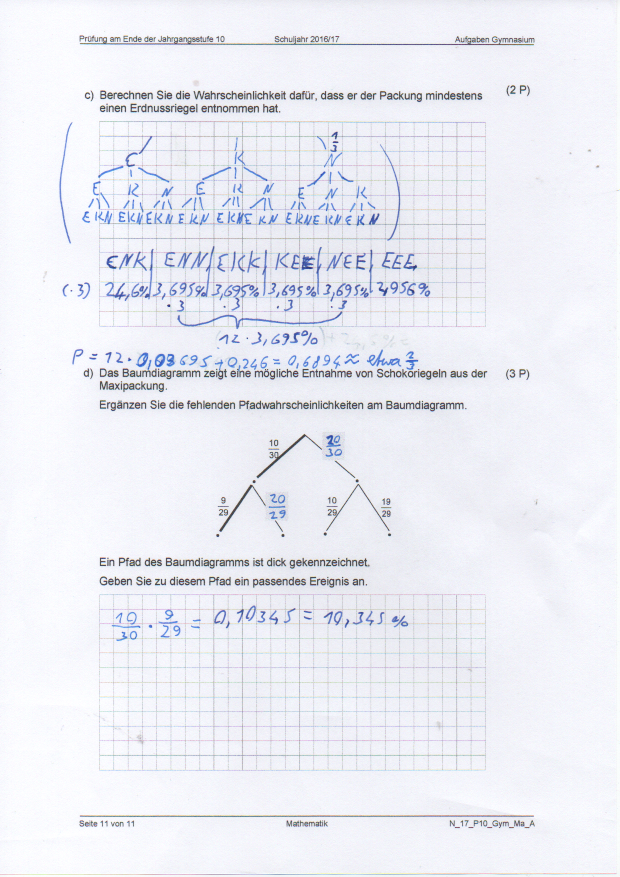 Prüfung am Ende der Jahrgangsstufe 10 Schuljahr 2016/17 Aufgaben Gymnasium
c) Berechnen Sie die Wahrscheinlichkeit dafür, dass er der Packung mindestens (2 P)
einen Erdnussriegel entnommen hat.
1/3
E K N
E K N E K N E N K
E K N E K N E K N E K N E K N E K N E K N E K N E K N
ENK | ENN | EKK | KEE | NEE | EEE
(·3) 24,6% 3,695% 3,695% 3,695% 3,695% 2,956%
·3 ·3 ·3 ·3
12 · 3,695%
P = 12 · 0,03695 + 0,246 = 0,6894 ≈ etwa 2/3
d) Das Baumdiagramm zeigt eine mögliche Entnahme von Schokoriegeln aus der (3 P)
Maxipackung.
Ergänzen Sie die fehlenden Pfadwahrscheinlichkeiten am Baumdiagramm.
10/30 20/30
9/29 20/29 10/29 19/29
Ein Pfad des Baumdiagramms ist dick gekennzeichnet.
Geben Sie zu diesem Pfad ein passendes Ereignis an.
10/30 · 9/29 = 0,10345 = 10,345 %
Seite 11 von 11 Mathematik N_17_P10_Gym_Ma_A